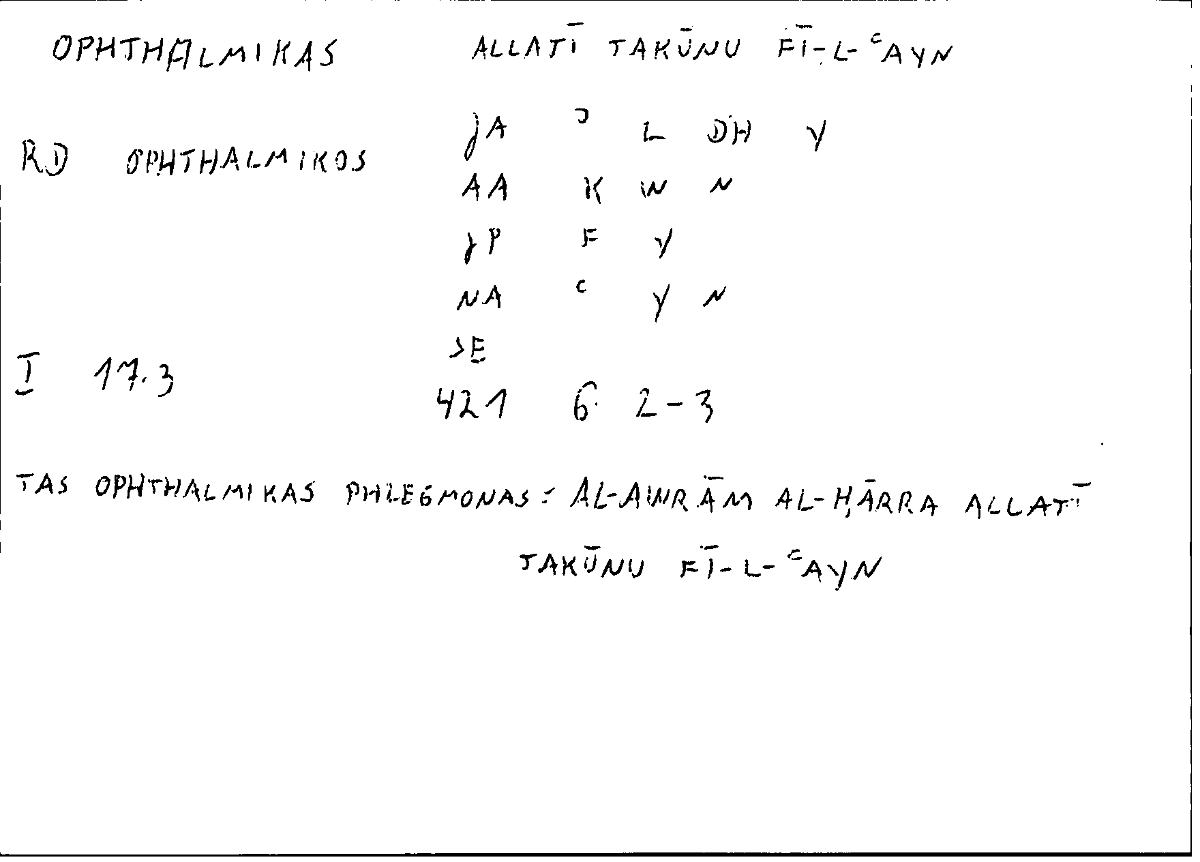 OPHTHALMIKAS ALLATĪ TAKŪNU FĪ-L-ʿAYN
RD OPHTHALMIKOS JA ʾ L DH Y
AA K W N
JP F Y
NA ʿ Y N
SE
I 17.3 421 6 2-3
TAS OPHTHALMIKAS PHLEGMONAS: AL-AWRĀM AL-ḤĀRRA ALLATĪ
TAKŪNU FĪ-L-ʿAYN